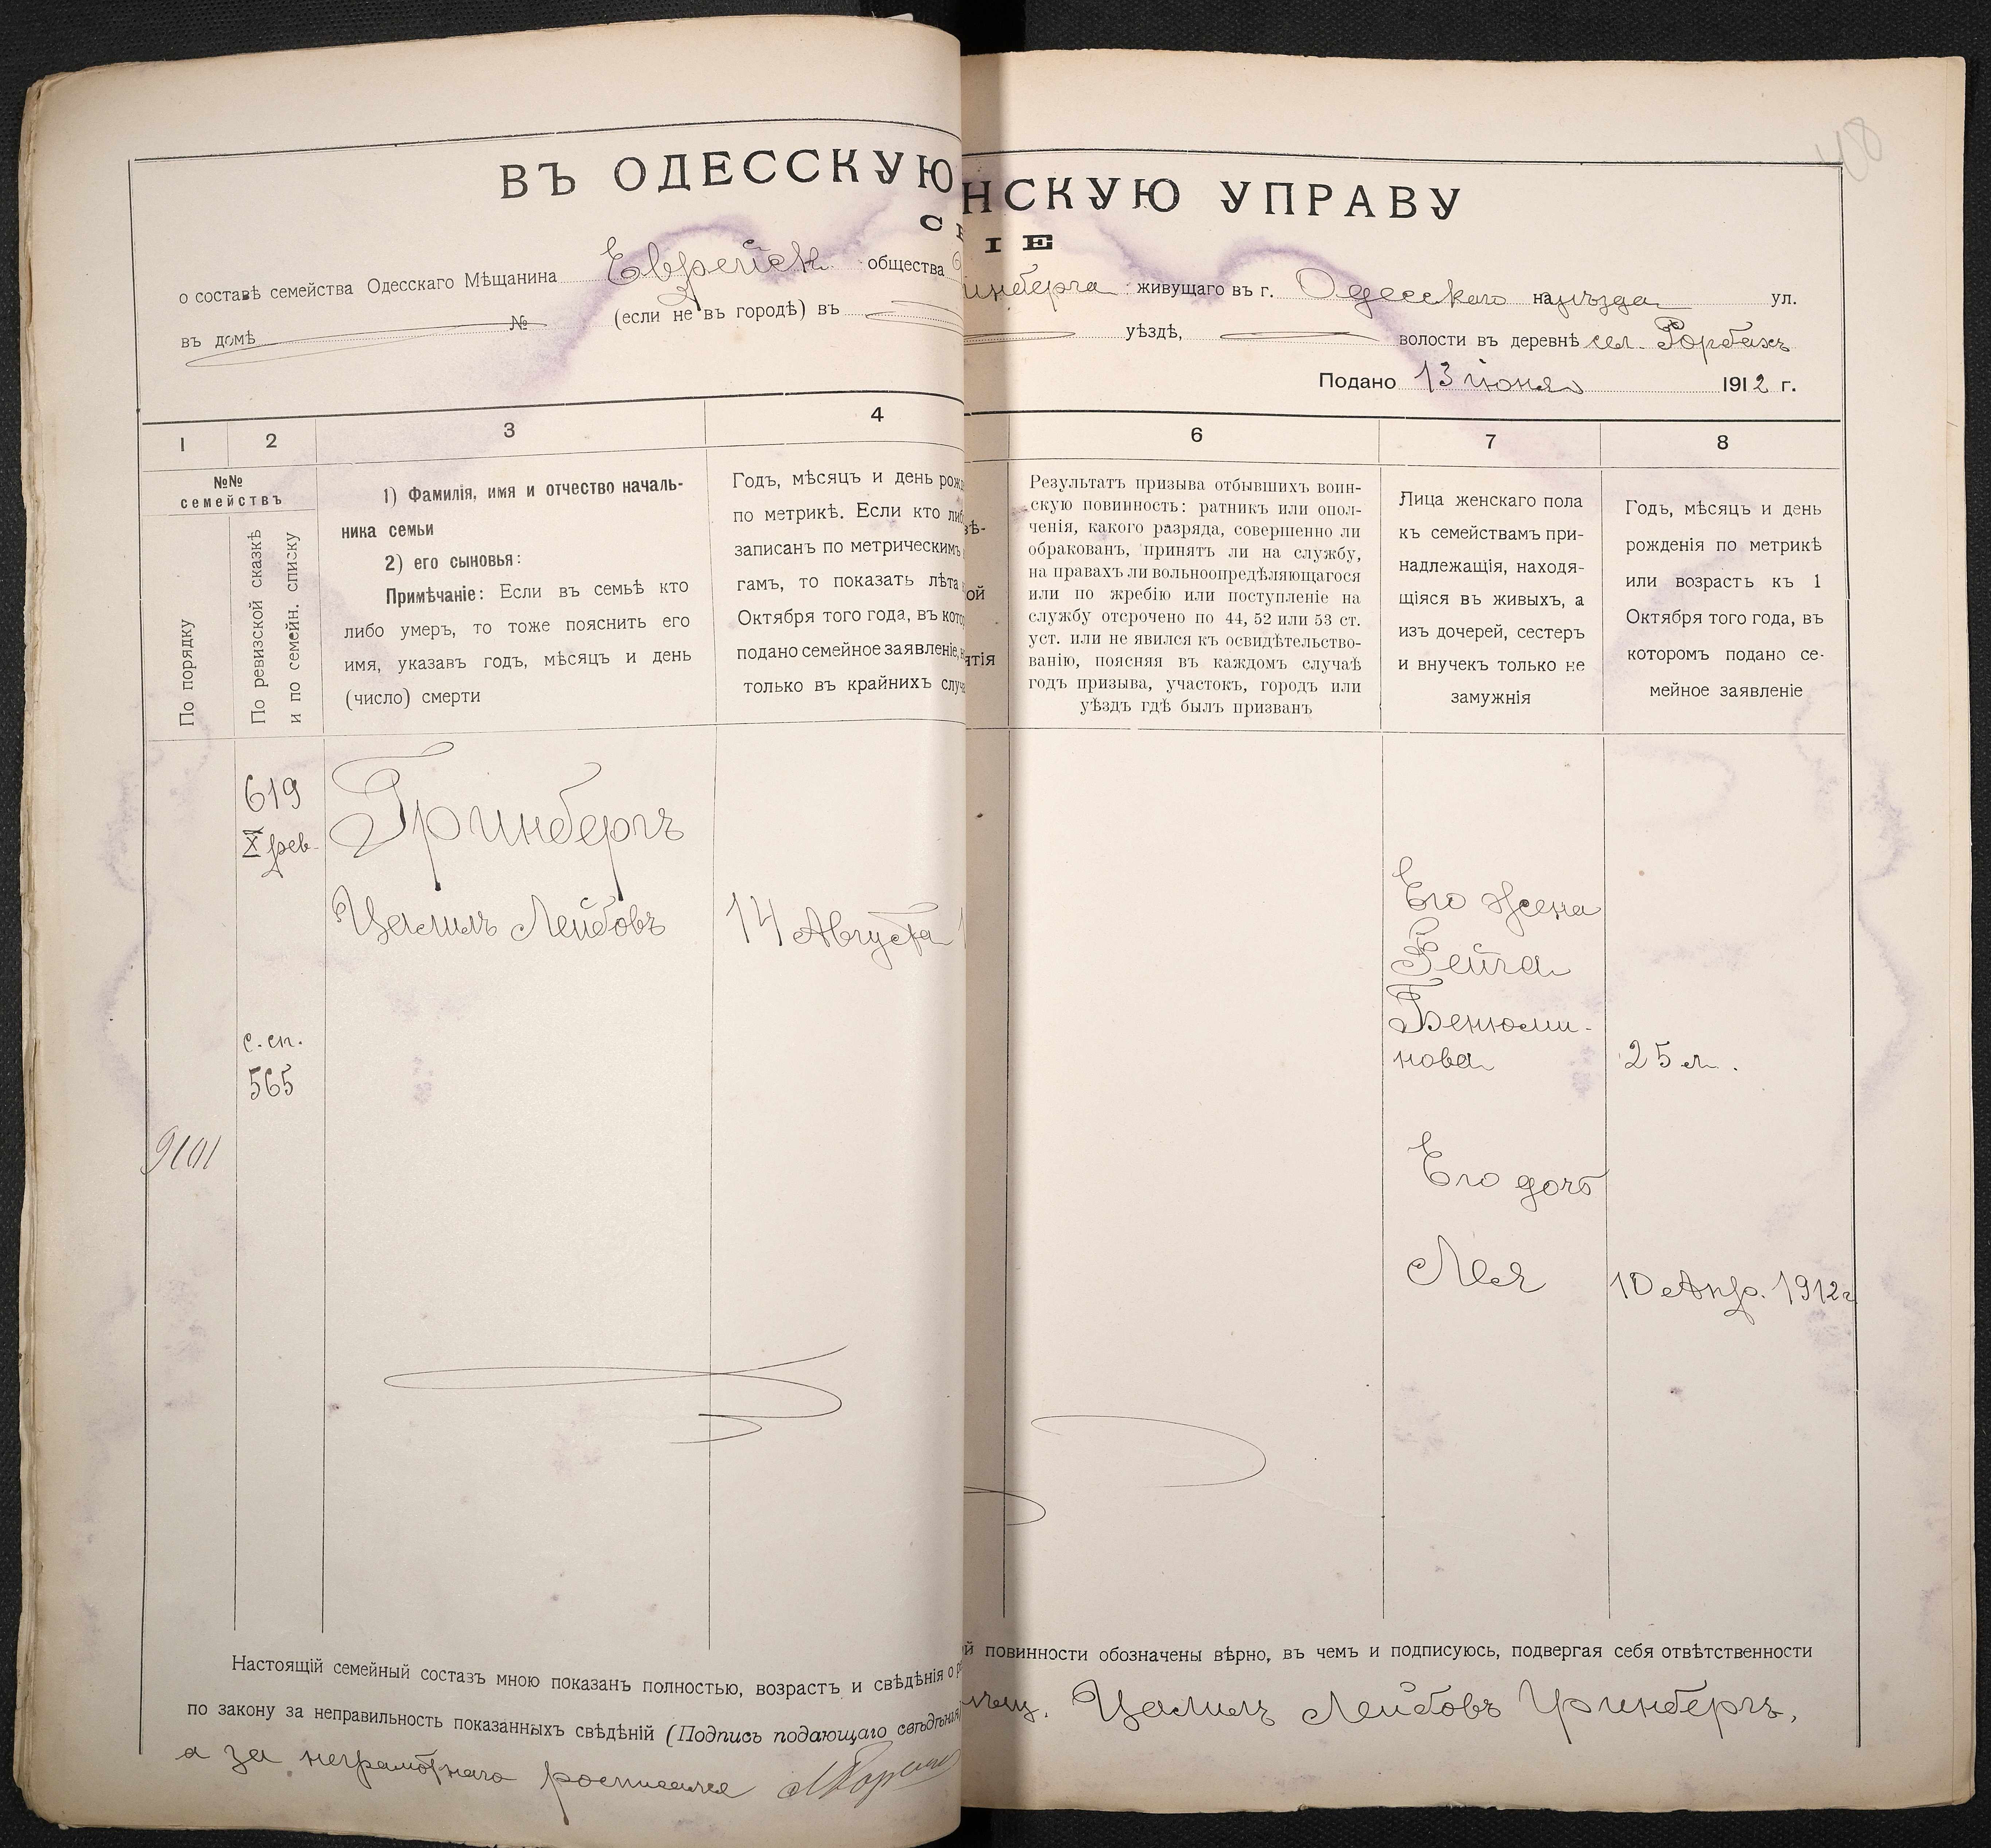 48
ВЪ ОДЕССКУЮ НСКУЮ УПРАВУ
С ІЕ
о составѣ семейства Одесскаго Мѣщанина Еврейск. общества инберга живущаго въ г. Одесскаго на уѣзда ул.
въ домѣ № (если не въ городѣ) въ уѣздѣ, волости въ деревнѣ сел. Рорбахъ
Подано 13 іюня 1912 г.
1 2 3 4 6 7 8
№№
семействъ
По порядку
По ревизской сказкѣ
и по семейн. списку
1) Фамилія, имя и отчество началь-
ника семьи
2) его сыновья:
Примѣчаніе: Если въ семьѣ кто
либо умеръ, то тоже пояснить его
имя, указавъ годъ, мѣсяцъ и день
(число) смерти
Годъ, мѣсяцъ и день рож
по метрикѣ. Если кто либ
записанъ по метрическимъ
гамъ, то показать лѣта
Октября того года, въ кото
подано семейное заявленіе, н
только въ крайнихъ случ
ѣ-
ой
ятія
Результатъ призыва отбывшихъ воин-
скую повинность: ратникъ или опол-
ченія, какого разряда, совершенно ли
обракованъ, принятъ ли на службу,
на правахъ ли вольноопредѣляющагося
или по жребію или поступленіе на
службу отсрочено по 44, 52 или 53 ст.
уст. или не явился къ освидѣтельство-
ванію, поясняя въ каждомъ случаѣ
годъ призыва, участокъ, городъ или
уѣздъ гдѣ былъ призванъ
Лица женскаго пола
къ семействамъ при-
надлежащія, находя-
щіяся въ живыхъ, а
изъ дочерей, сестеръ
и внучекъ только не
замужнія
Годъ, мѣсяцъ и день
рожденія по метрикѣ
или возрастъ къ 1
Октября того года, въ
которомъ подано се-
мейное заявленіе
619
X рев.
Гринбергъ
Цалилъ Лейбовъ
14 Августа 1
с. сп.
565
9101
Его жена
Рейга
Бенюми-
нова
25 л.
Его дочь
Лея
10 Апр. 1912 г
Настоящій семейный составъ мною показанъ полностью, возрастъ и свѣдѣнія о й повинности обозначены вѣрно, въ чемъ и подписуюсь, подвергая себя отвѣтственности
по закону за неправильность показанныхъ свѣдѣній (Подпись подающаго свѣдѣнія) мѣщ. Цалилъ Лейбовъ Гринбергъ,
а за неграмотнаго росписался